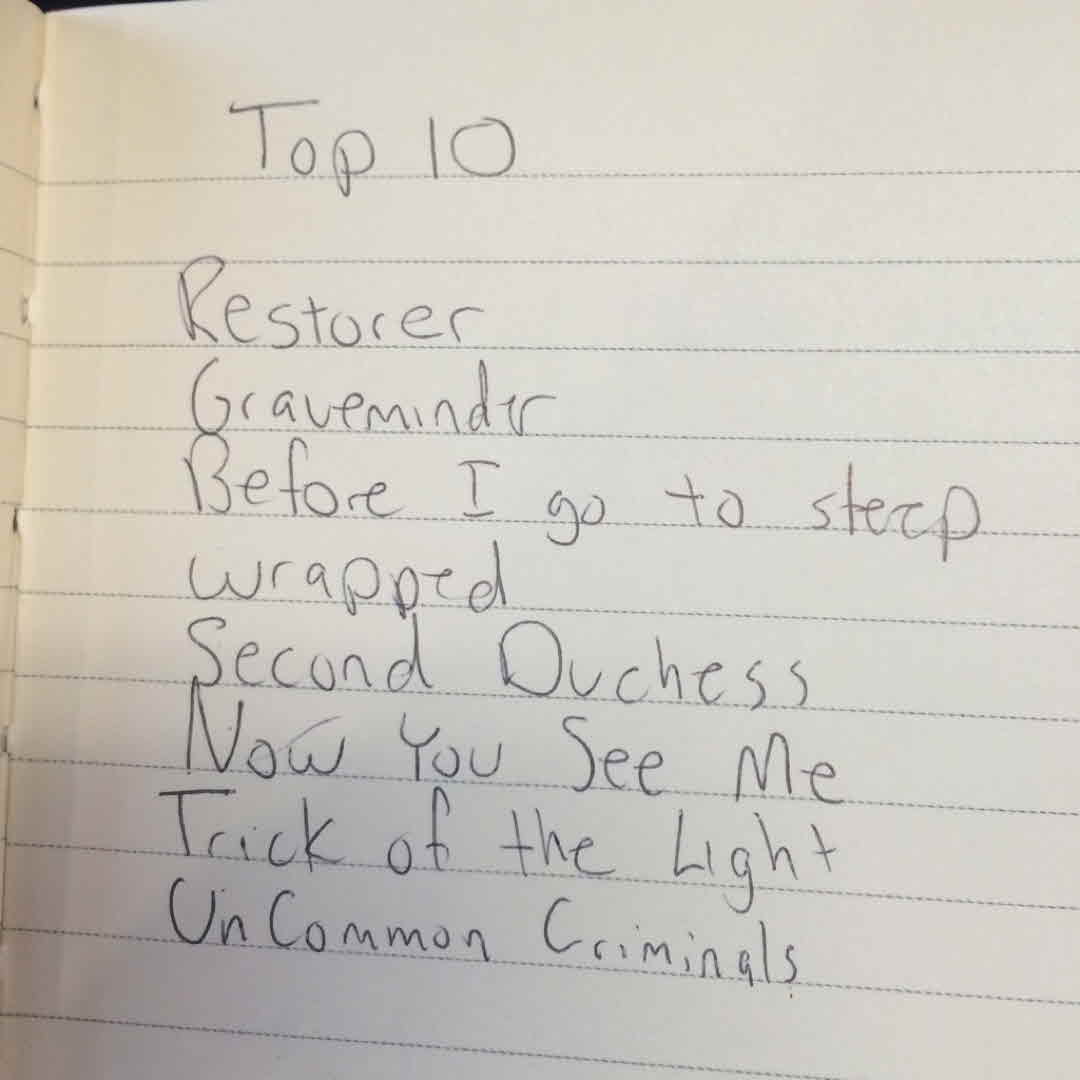 Top 10
Restorer
Graveminder
Before I go to sleep
Wrapped
Second Duchess
Now You See Me
Trick of the Light
UnCommon Criminals